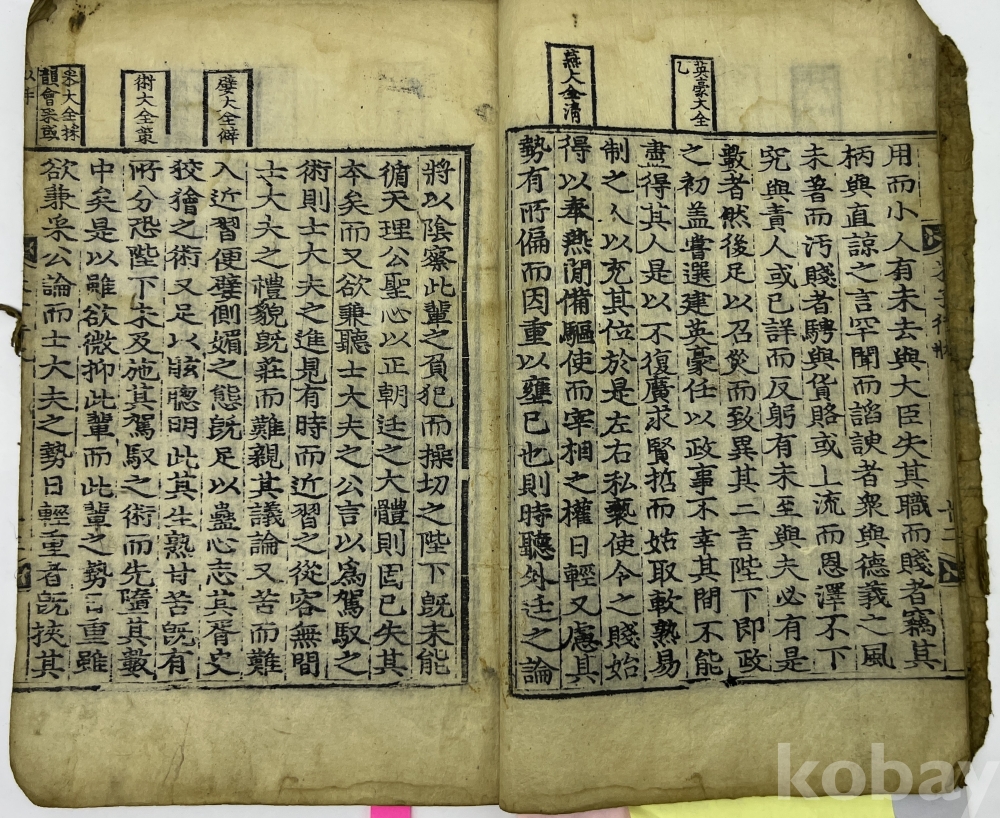 英豪大全
乙
燕大全淸
用而小人有未去與大臣失其職而賤者竊其
柄與直諒之言罕聞而謟諛者衆與德義之風
未著而汚賤者騁與貨賂或上流而恩澤不下
究與責人或已詳而反躬有未至與夫必有是
數者然後足以召災而致異其二言陛下即政
之初盖嘗選建英豪任以政事不幸其間不能
盡得其人是以不復廣求賢哲而姑取軟熟易
制之人以充其位於是左右私褻使令之賤始
得以奉燕閒備驅使而宰相之權日輕又慮其
勢有所偏而因重以壅已也則時聽外廷之論
嬖大全僻
術大全策
采大全採
韻會采或
以手
將以陰察此輩之負犯而操切之陛下旣未能
循天理公聖心以正朝廷之大體則固已失其
本矣而又欲兼聽士大夫之公言以爲駕馭之
術則士大夫之進見有時而近習之從容無間
士大夫之禮貌旣莊而難親其議論又苦而難
入近習便嬖側媚之態旣足以蠱心志其胥史
狡獪之術又足以眩聰明此其生熟甘苦旣有
所分恐陛下未及施其駕馭之術而先墮其數
中矣是以雖欲微抑此輩而此輩之勢日重雖
欲兼采公論而士大夫之勢日輕重者旣挾其
kobay